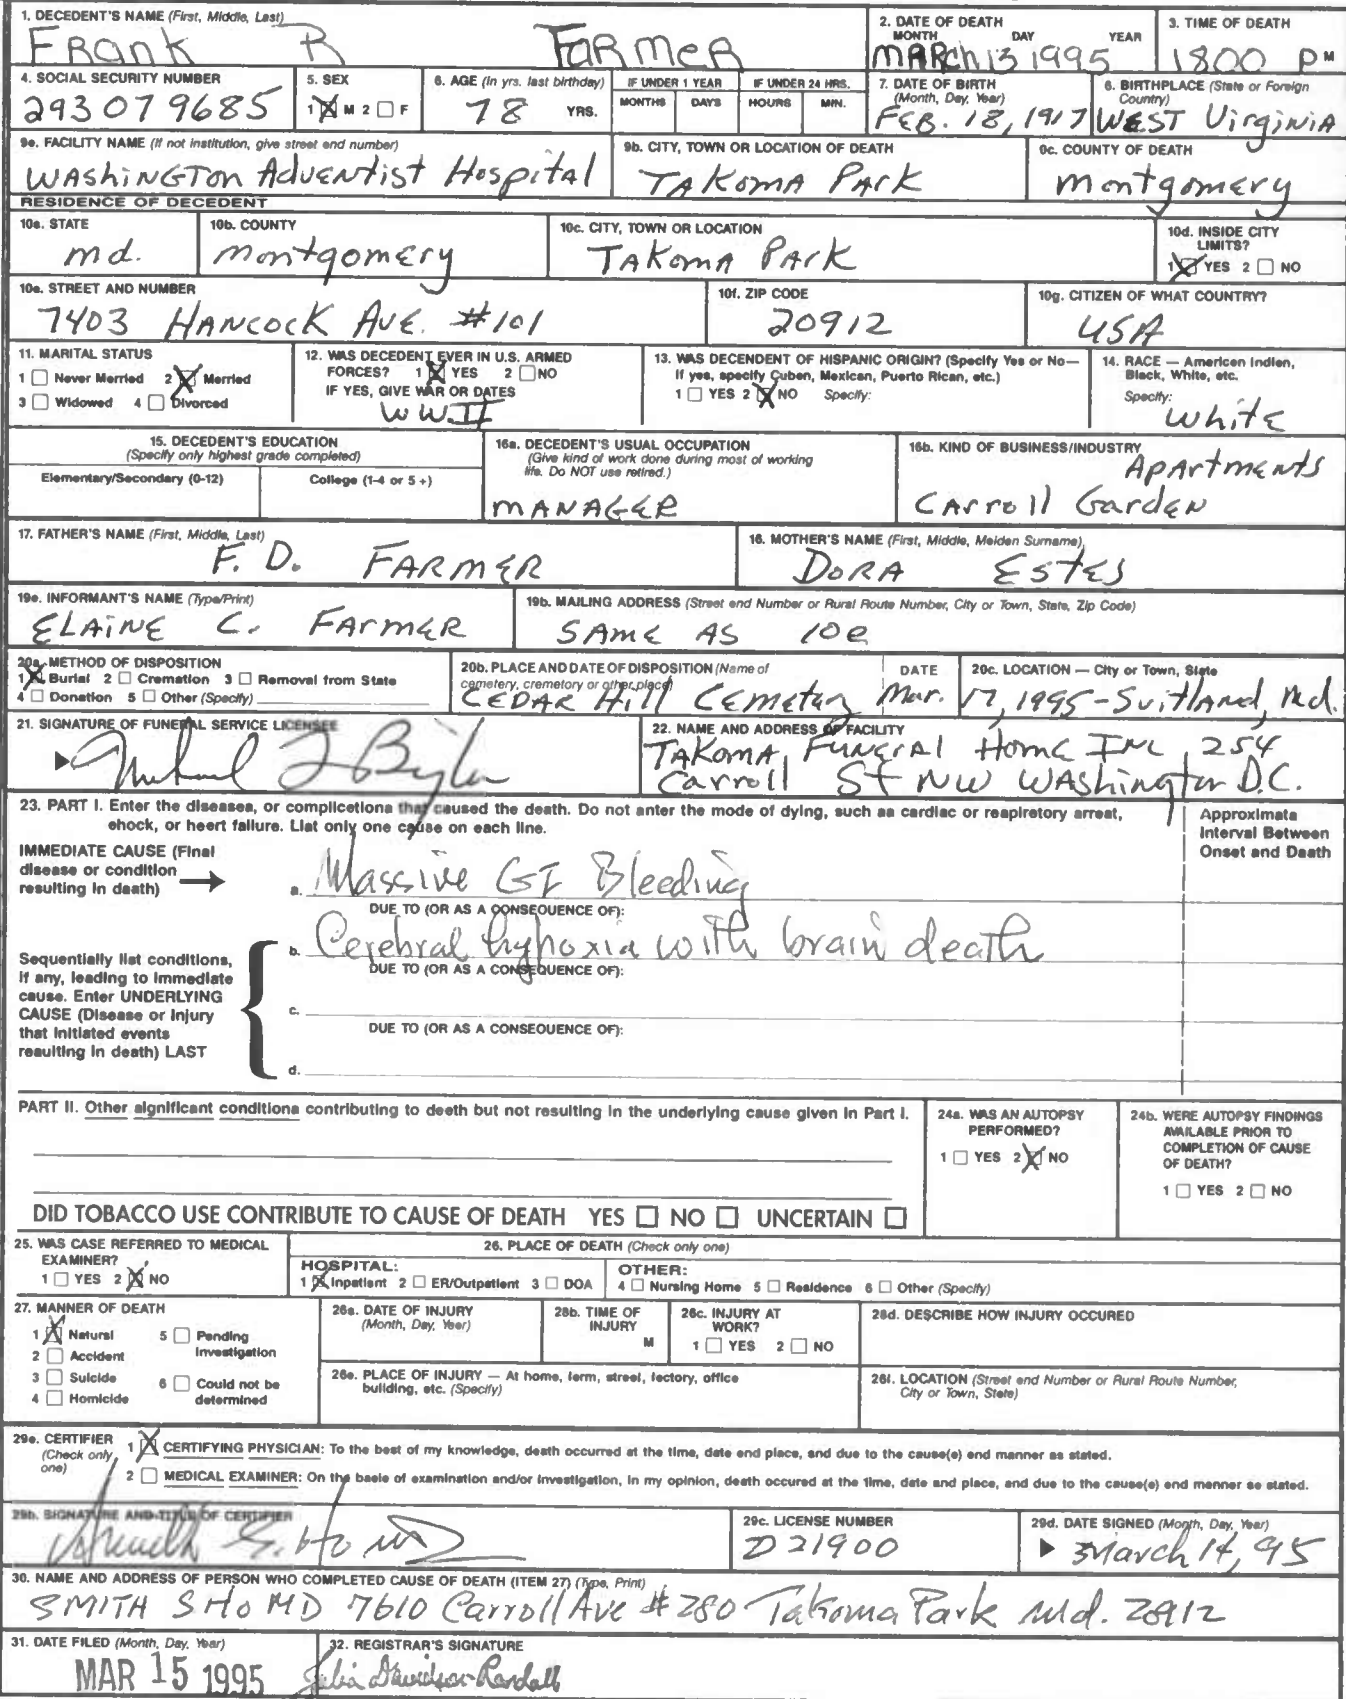 1. DECEDENT'S NAME (First, Middle, Last)
FRank R FARMER
2. DATE OF DEATH
MONTH DAY YEAR
MARCh 13 1995
3. TIME OF DEATH
1800 PM
4. SOCIAL SECURITY NUMBER
293079685
5. SEX
1 ☒ M 2 ☐ F
6. AGE (In yrs. last birthday)
78 YRS.
IF UNDER 1 YEAR
MONTHS DAYS
IF UNDER 24 HRS.
HOURS MIN.
7. DATE OF BIRTH
(Month, Day, Year)
FEB. 18, 1917
6. BIRTHPLACE (State or Foreign
Country)
WEST VirginiA
9e. FACILITY NAME (If not institution, give street end number)
WAShinGTon AdvEntist HospitAl
9b. CITY, TOWN OR LOCATION OF DEATH
TAKomA PArk
0c. COUNTY OF DEATH
montgomery
RESIDENCE OF DECEDENT
10e. STATE
md.
10b. COUNTY
montgomEry
10c. CITY, TOWN OR LOCATION
TAKomA PArk
10d. INSIDE CITY
LIMITS?
1 ☒ YES 2 ☐ NO
10e. STREET AND NUMBER
7403 HANCOCK AVE. #101
10f. ZIP CODE
20912
10g. CITIZEN OF WHAT COUNTRY?
USA
11. MARITAL STATUS
1 ☐ Never Merried 2 ☒ Merried
3 ☐ Widowed 4 ☐ Divorced
12. WAS DECEDENT EVER IN U.S. ARMED
FORCES? 1 ☒ YES 2 ☐ NO
IF YES, GIVE WAR OR DATES
WWII
13. WAS DECENDENT OF HISPANIC ORIGIN? (Specify Yes or No—
If yes, specify Cuben, Mexican, Puerto Rican, etc.)
1 ☐ YES 2 ☒ NO Specify:
14. RACE — Amerlcen Indlen,
Black, White, etc.
Specify:
whitE
15. DECEDENT'S EDUCATION
(Specify only highest grade completed)
Elementary/Secondary (0-12) College (1-4 or 5 +)
16a. DECEDENT'S USUAL OCCUPATION
(Give kind of work done during most of working
life. Do NOT use retired.)
MANAGER
16b. KIND OF BUSINESS/INDUSTRY
ApArtmEnts
CArroll GardEN
17. FATHER'S NAME (First, Middle, Last)
F. D. FARMER
16. MOTHER'S NAME (First, Middle, Meiden Surname)
DORA EstES
19e. INFORMANT'S NAME (Type/Print)
ELAiNE C. FArmER
19b. MAILING ADDRESS (Street end Number or Rural Route Number, City or Town, State, Zip Code)
SAmE AS 10e
20a. METHOD OF DISPOSITION
1 ☒ Burlal 2 ☐ Cremation 3 ☐ Removal from State
4 ☐ Donation 5 ☐ Other (Specify)
20b. PLACE AND DATE OF DISPOSITION (Name of
cemetery, cremetory or other place)
CEDAR Hill Cemetery
DATE
Mar. 17, 1995
20c. LOCATION — City or Town, State
-SuitlAnd, Md.
21. SIGNATURE OF FUNERAL SERVICE LICENSEE
22. NAME AND ADDRESS OF FACILITY
TAKomA FunErAl HomE Inc, 254
Carroll St NW WAShington D.C.
23. PART I. Enter the diseasea, or complicetiona that caused the death. Do not anter the mode of dying, such aa cardlac or reapiretory arreat,
ehock, or heert fallure. Liat only one cause on each line.
Approximata
Interval Between
Onset and Daath
IMMEDIATE CAUSE (Final
disease or condition
resulting in death)
a. Massive GI Bleeding
DUE TO (OR AS A CONSEOUENCE OF):
b. Cerebral hyhoxia with brain death
DUE TO (OR AS A CONSEQUENCE OF):
c.
DUE TO (OR AS A CONSEOUENCE OF):
d.
Sequentially liat conditions,
if any, leading to immediate
cause. Enter UNDERLYING
CAUSE (Disease or Injury
that initiated events
reaulting in death) LAST
PART II. Other aignificant conditiona contributing to deeth but not resulting in the underlying cause given in Part I.
24a. WAS AN AUTOPSY
PERFORMED?
1 ☐ YES 2 ☒ NO
24b. WERE AUTOPSY FINDINGS
AVAILABLE PRIOR TO
COMPLETION OF CAUSE
OF DEATH?
1 ☐ YES 2 ☐ NO
DID TOBACCO USE CONTRIBUTE TO CAUSE OF DEATH YES ☐ NO ☐ UNCERTAIN ☐
25. WAS CASE REFERRED TO MEDICAL
EXAMINER?
1 ☐ YES 2 ☒ NO
26. PLACE OF DEATH (Check only one)
HOSPITAL:
1 ☒ Inpatient 2 ☐ ER/Outpatient 3 ☐ DOA
OTHER:
4 ☐ Nursing Home 5 ☐ Residence 6 ☐ Other (Specify)
27. MANNER OF DEATH
1 ☒ Natural 5 ☐ Pending
Investigation
2 ☐ Accident
3 ☐ Sulcide 6 ☐ Could not be
determined
4 ☐ Homicide
26s. DATE OF INJURY
(Month, Day, Year)
28b. TIME OF
INJURY
M
26c. INJURY AT
WORK?
1 ☐ YES 2 ☐ NO
28d. DESCRIBE HOW INJURY OCCURED
26e. PLACE OF INJURY — At home, ferm, streel, fectory, office
building, etc. (Specify)
26f. LOCATION (Street end Number or Rural Route Number,
City or Town, State)
29e. CERTIFIER
(Check only
one)
1 ☒ CERTIFYING PHYSICIAN: To the best of my knowledge, death occurred at the time, date end place, and due to the cause(e) end manner as stated.
2 ☐ MEDICAL EXAMINER: On the baele of examination and/or investigation, in my opinion, death occured at the time, date and place, and due to the cause(e) end menner se stated.
29b. SIGNATURE AND TITLE OF CERTIFIER
29c. LICENSE NUMBER
D21900
29d. DATE SIGNED (Month, Day, Year)
March 14, 95
30. NAME AND ADDRESS OF PERSON WHO COMPLETED CAUSE OF DEATH (ITEM 27) (Type, Print)
SMITH S Ho MD 7610 Carroll Ave #280 Takoma Park Md. 20912
31. DATE FILED (Month, Day, Year)
MAR 15 1995
32. REGISTRAR'S SIGNATURE
Julia Davidson-Randall